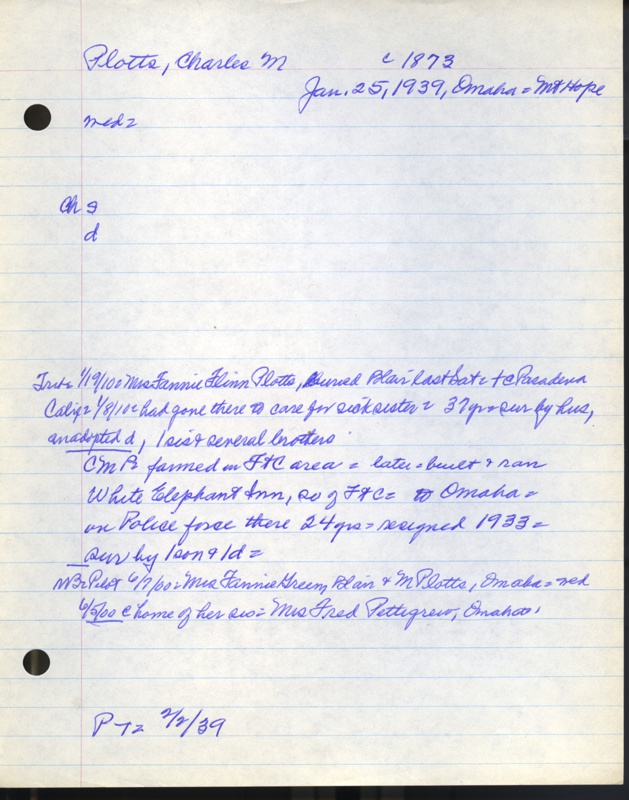 Plotts, Charles M c 1873
Jan. 25, 1939, Omaha = Mt Hope
med =
Ch s
d
Trib = 1/19/10 = Mrs Fannie Flinn Plotts, buried Blair last Sat = + c Pasadena
Calif = 1/8/10 = had gone there to care for sick sister = 37 yrs = sur by hus,
an adopted d, 1 sis & several brothers
CMP = farmed in FtC area = later = built & ran
White Elephant Inn, so of FtC = to Omaha =
on Police force there 24 yrs = resigned 1933 =
sur by 1 son & 1 d =
6/7/00 = Mrs Fannie Green, Blair & M Plotts, Omaha = med
6/5/00 c home of her sis = Mrs Fred Pettegrew, Omaha
P T = 2/2/39